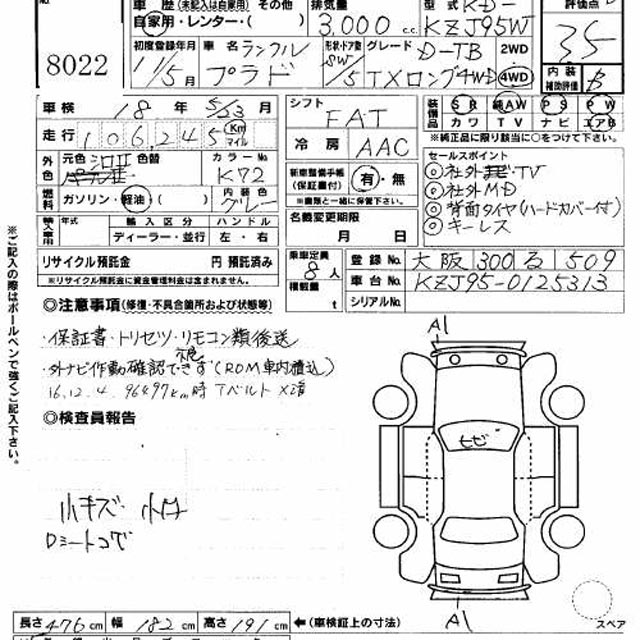 車歴 (未記入は自家用) その他
自家用・レンター・( )
排気量 3,000 c.c.
型式 KD-KZJ95W
評価点
3.5
8022
初度登録年月 11/5月
車名 ランクル プラド
形状・ドア数 SW/5
グレード D-TB TXロング 4WD
2WD
4WD
内装補助評価 B
車検 18年 5/23月
走行 106,245 Km マイル
シフト FAT
冷房 AAC
装備品 SR 純AW PS PW
カワ TV ナビ エアB
※純正品に限り該当に○をつけて下さい。
外色 元色 シロII 色替
カラーNo. K72
燃料 ガソリン・軽油・( )
内装色 グレー
新車整備手帳(保証書付) 有・無
※書類と一緒に保管して下さい。
セールスポイント
◎社外 TV
◎社外MD
◎背面タイヤ(ハードカバー付)
◎キーレス
輸入車用 年式 輸入区分 ハンドル
ディーラー・並行 左・右
名義変更期限
月 日
リサイクル預託金 円 預託済み
※リサイクル預託金に資金管理料金は含まれません。
乗車定員 8人
積載量 t
登録No. 大阪 300 る 509
車台No. KZJ95-0125313
シリアルNo.
◎注意事項(修復・不具合箇所および状態等)
・保証書・トリセツ・リモコン類後送
・外ナビ作動確認できず(ROM車内積込)
16.12.4 96497km時 Tベルト
◎検査員報告
小キズ・小凹
Dミートコゲ
A1
ヒビ
A1
スペア
長さ 476cm 幅 182cm 高さ 191cm ←(車検証上の寸法)
※ご記入の際はボールペンで強くご記入下さい。